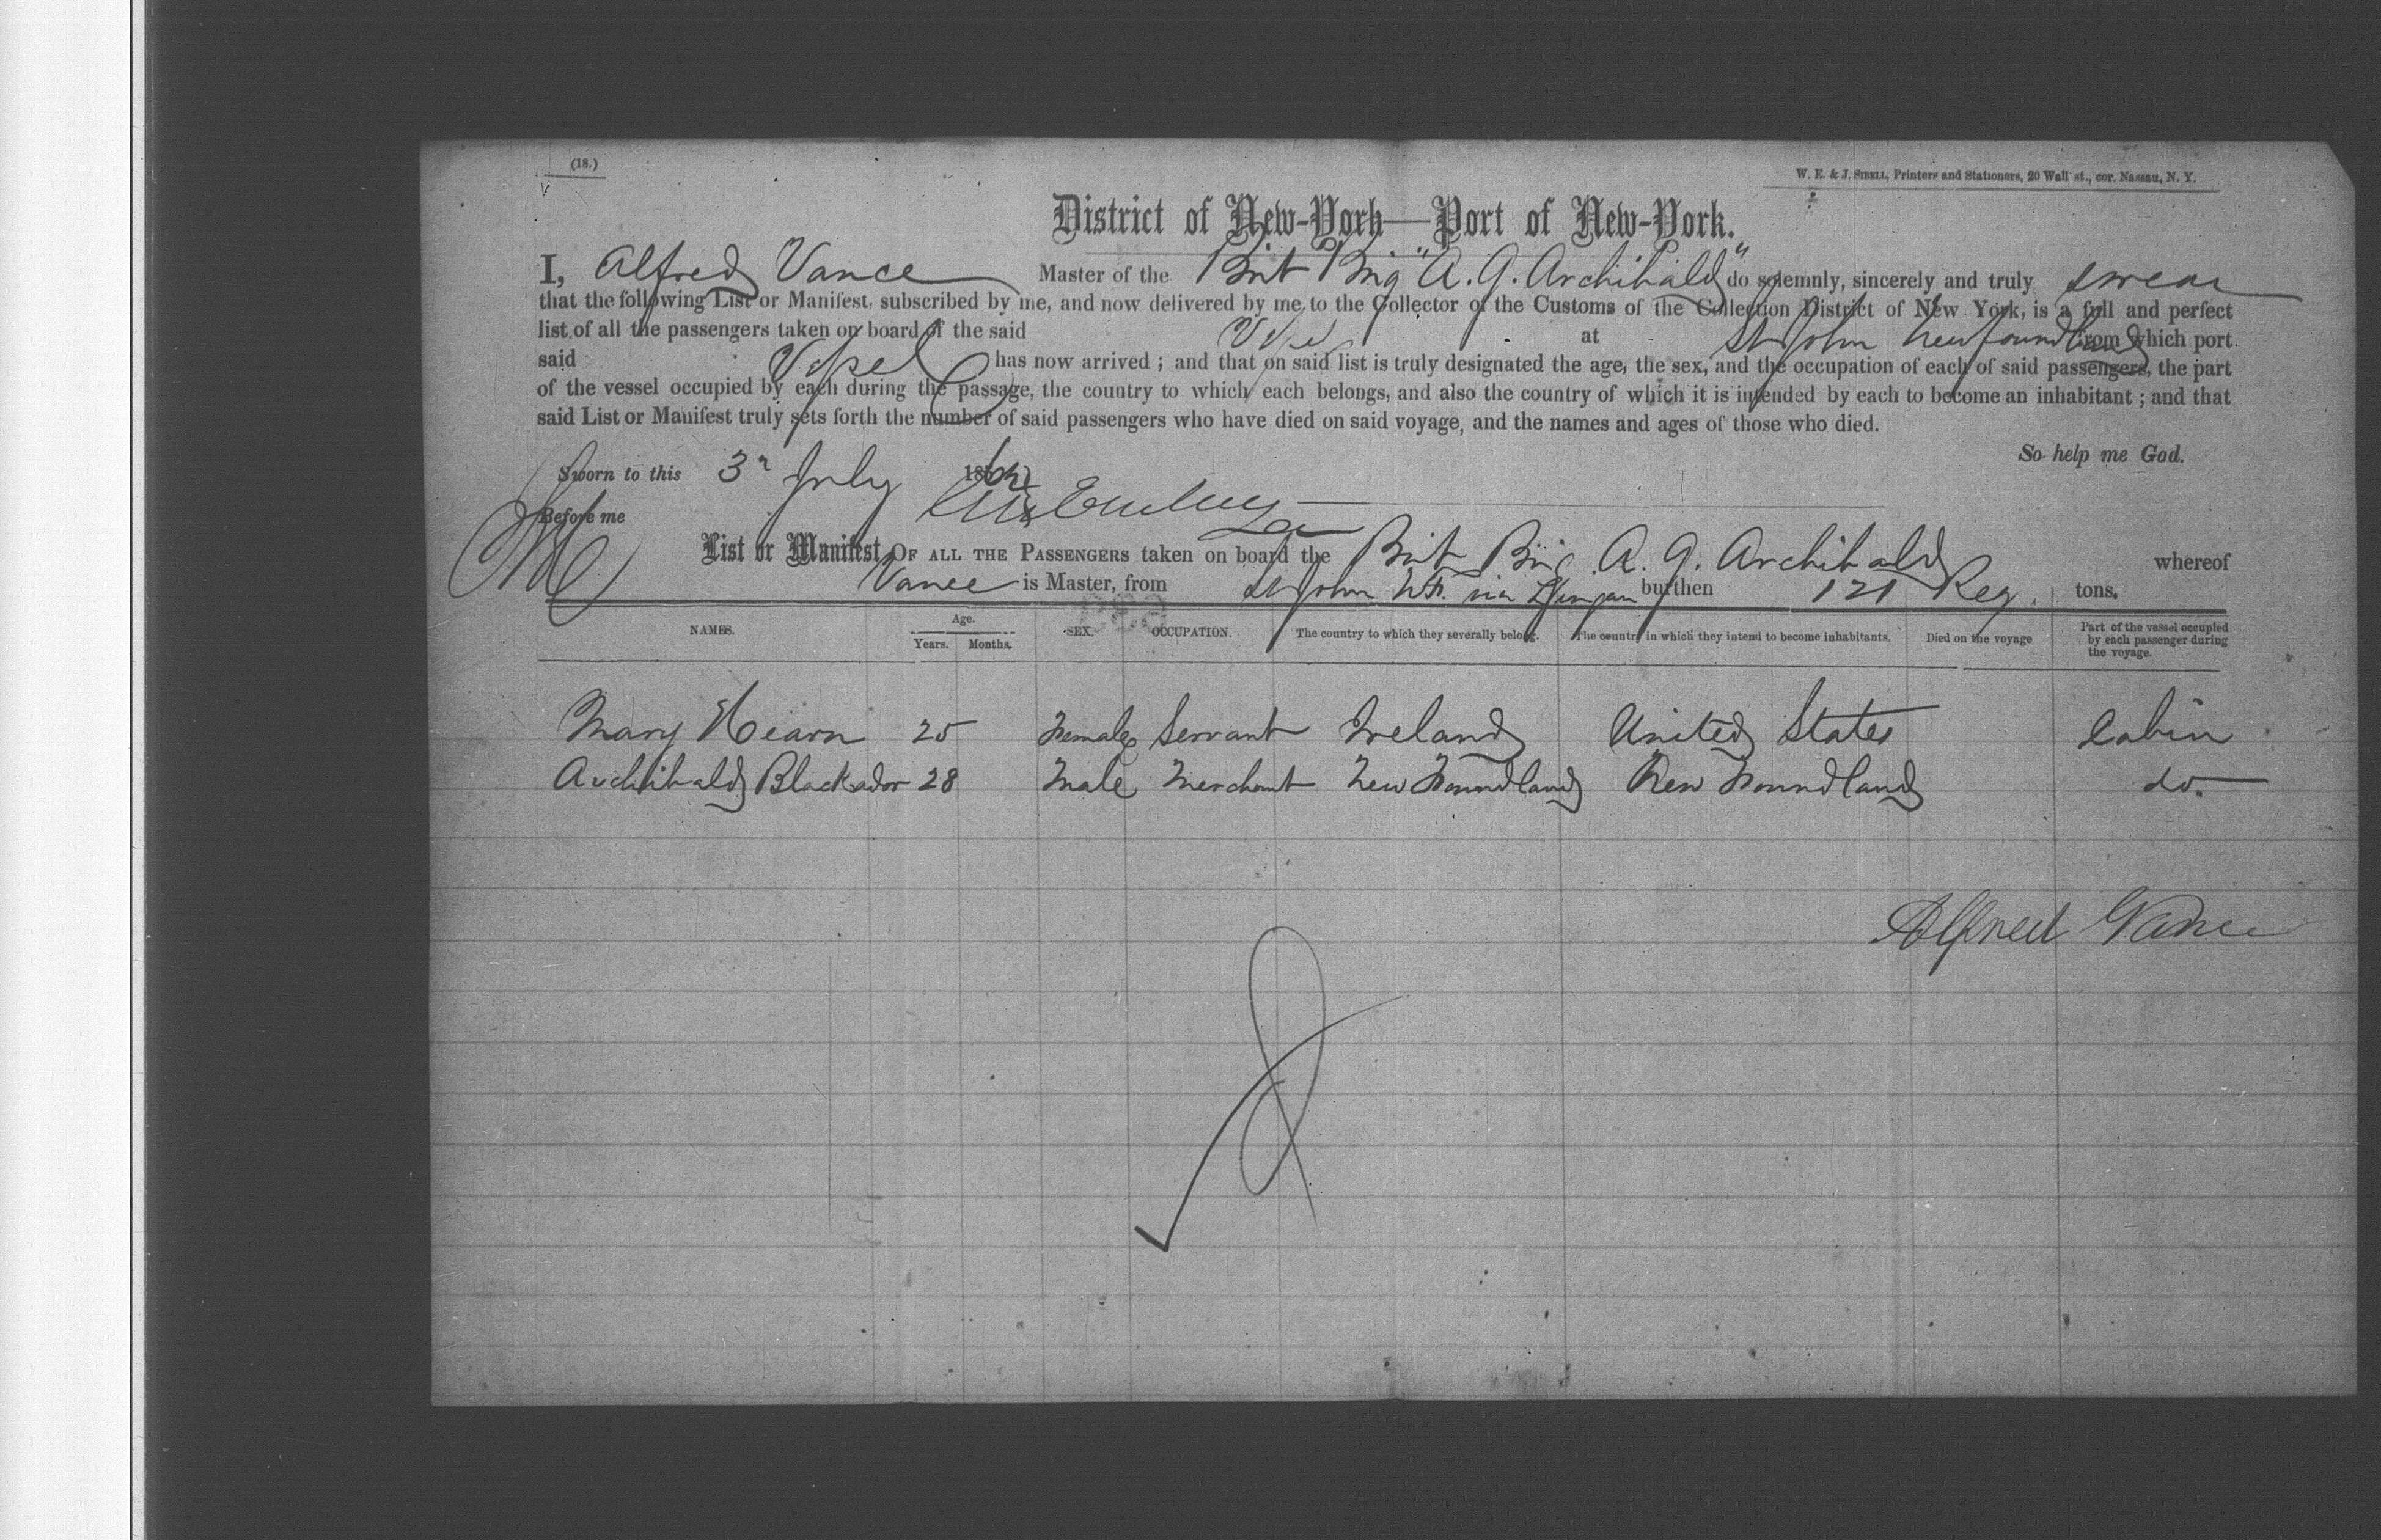 (18.)
W. E. & J. SIBELL, Printers and Stationers, 20 Wall st., cor. Nassau, N. Y.
District of New-York—Port of New-York.
I, Alfred Vance Master of the Brit Brig "A. G. Archibald" do solemnly, sincerely and truly swear
that the following List or Manifest, subscribed by me, and now delivered by me to the Collector of the Customs of the Collection District of New York, is a full and perfect
list of all the passengers taken on board of the said Vessel at St John Newfoundland from which port
said Vessel has now arrived ; and that on said list is truly designated the age, the sex, and the occupation of each of said passengers, the part
of the vessel occupied by each during the passage, the country to which each belongs, and also the country of which it is intended by each to become an inhabitant ; and that
said List or Manifest truly sets forth the number of said passengers who have died on said voyage, and the names and ages of those who died.
So help me God.
Sworn to this 3 July 186
Before me
List or Manifest OF ALL THE PASSENGERS taken on board the Brit Brig A. G. Archibald whereof
Vance is Master, from St John NF. via burthen 121 Reg. tons.
NAMES. Age. Years. Months. SEX. OCCUPATION. The country to which they severally belong. The country in which they intend to become inhabitants. Died on the voyage Part of the vessel occupied by each passenger during the voyage.
Mary Hearn 25 Female Servant Ireland United States Cabin
Archibald Blackador 28 Male Merchant New Foundland New Foundland do.
Alfred Vance